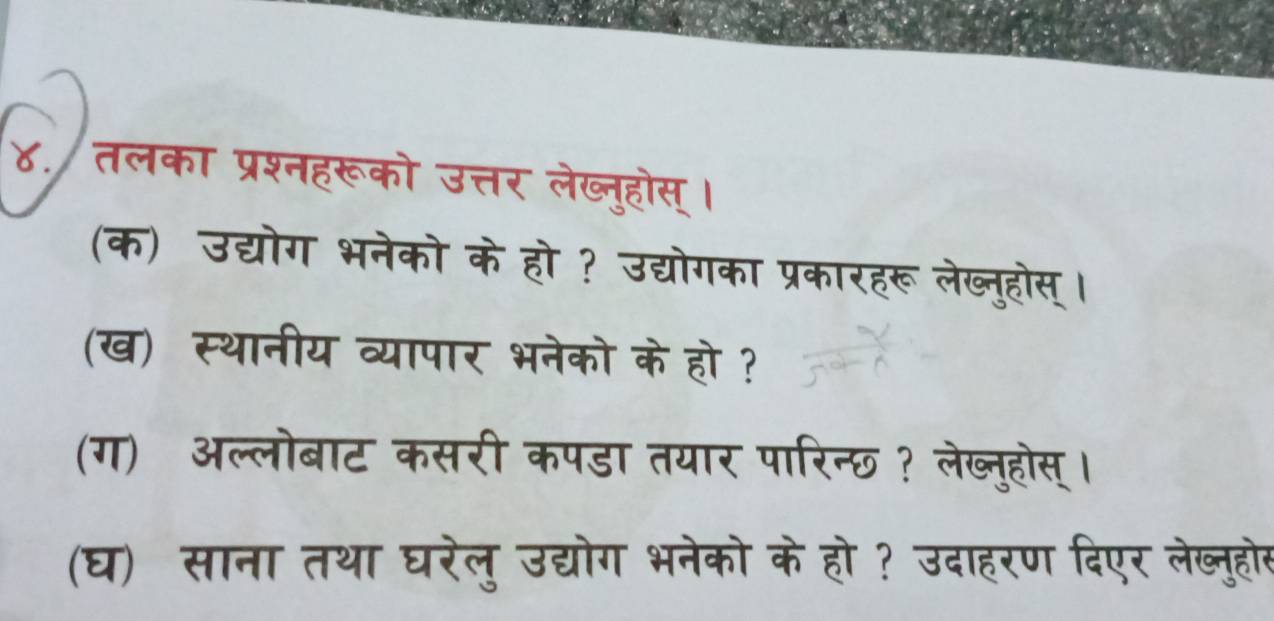 ४. तलका प्रश्नहरूको उत्तर लेख्नुहोस् ।
(क) उद्योग भनेको के हो ? उद्योगका प्रकारहरू लेख्नुहोस् ।
(ख) स्थानीय व्यापार भनेको के हो ?
(ग) अल्लोबाट कसरी कपडा तयार पारिन्छ ? लेख्नुहोस् ।
(घ) साना तथा घरेलु उद्योग भनेको के हो ? उदाहरण दिएर लेख्नुहोस